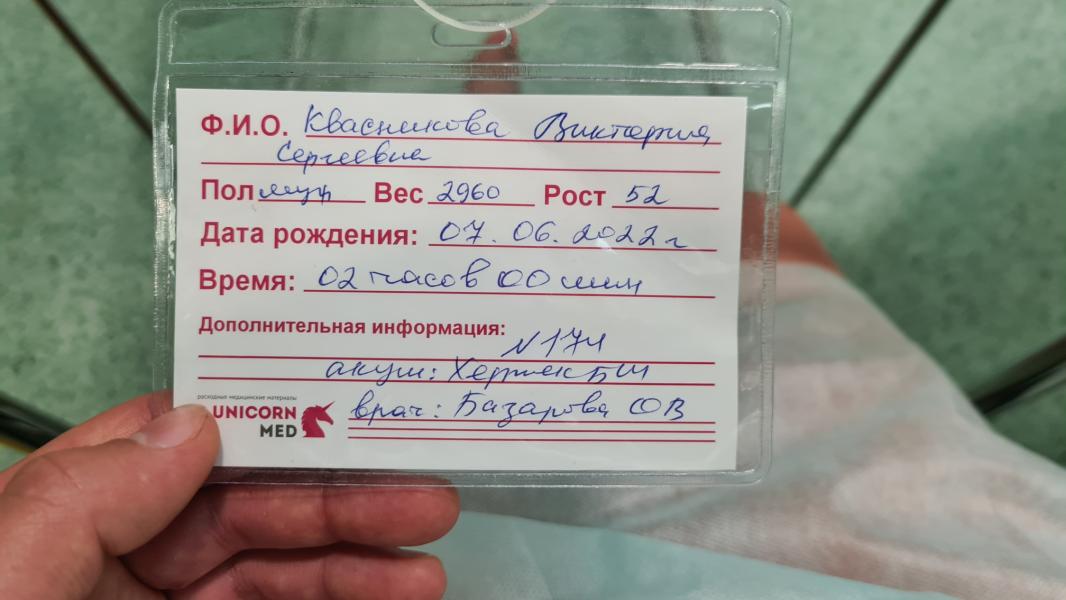 Ф.И.О. Квасникова Виктория
Сергеевна
Пол муж Вес 2960 Рост 52
Дата рождения: 07. 06. 2022 г
Время: 02 часов 00 мин
Дополнительная информация:
акуш:
врач: Базарова ОВ
расходные медицинские материалы
UNICORN
MED